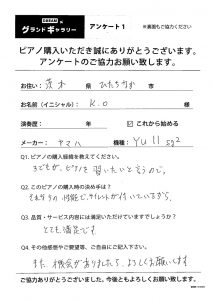 グランドギャラリー アンケート1 ※裏面もご協力ください
ピアノ購入いただき誠にありがとうございます。
アンケートのご協力お願い致します。
お住い: 茨木 県 ひたちなか 市
お名前(イニシャル): K.O 様
演奏度: 年 ☑ これから始める
メーカー: ヤマハ 機種: YU11
Q1. ピアノの購入経緯を教えてください。
子どもが、ピアノを習いたいと言うので。
Q2. このピアノ購入時の決め手は?
サイレントが付いているから。
Q3. 品質・サービス内容には満足いただけていますでしょうか?
とても満足です
Q4. その他感想やご要望等、ご自由にご記入下さい。
また機会がありましたら、よろしくお願いします。
ご協力ありがとうございました。今後ともよろしくお願い致します。